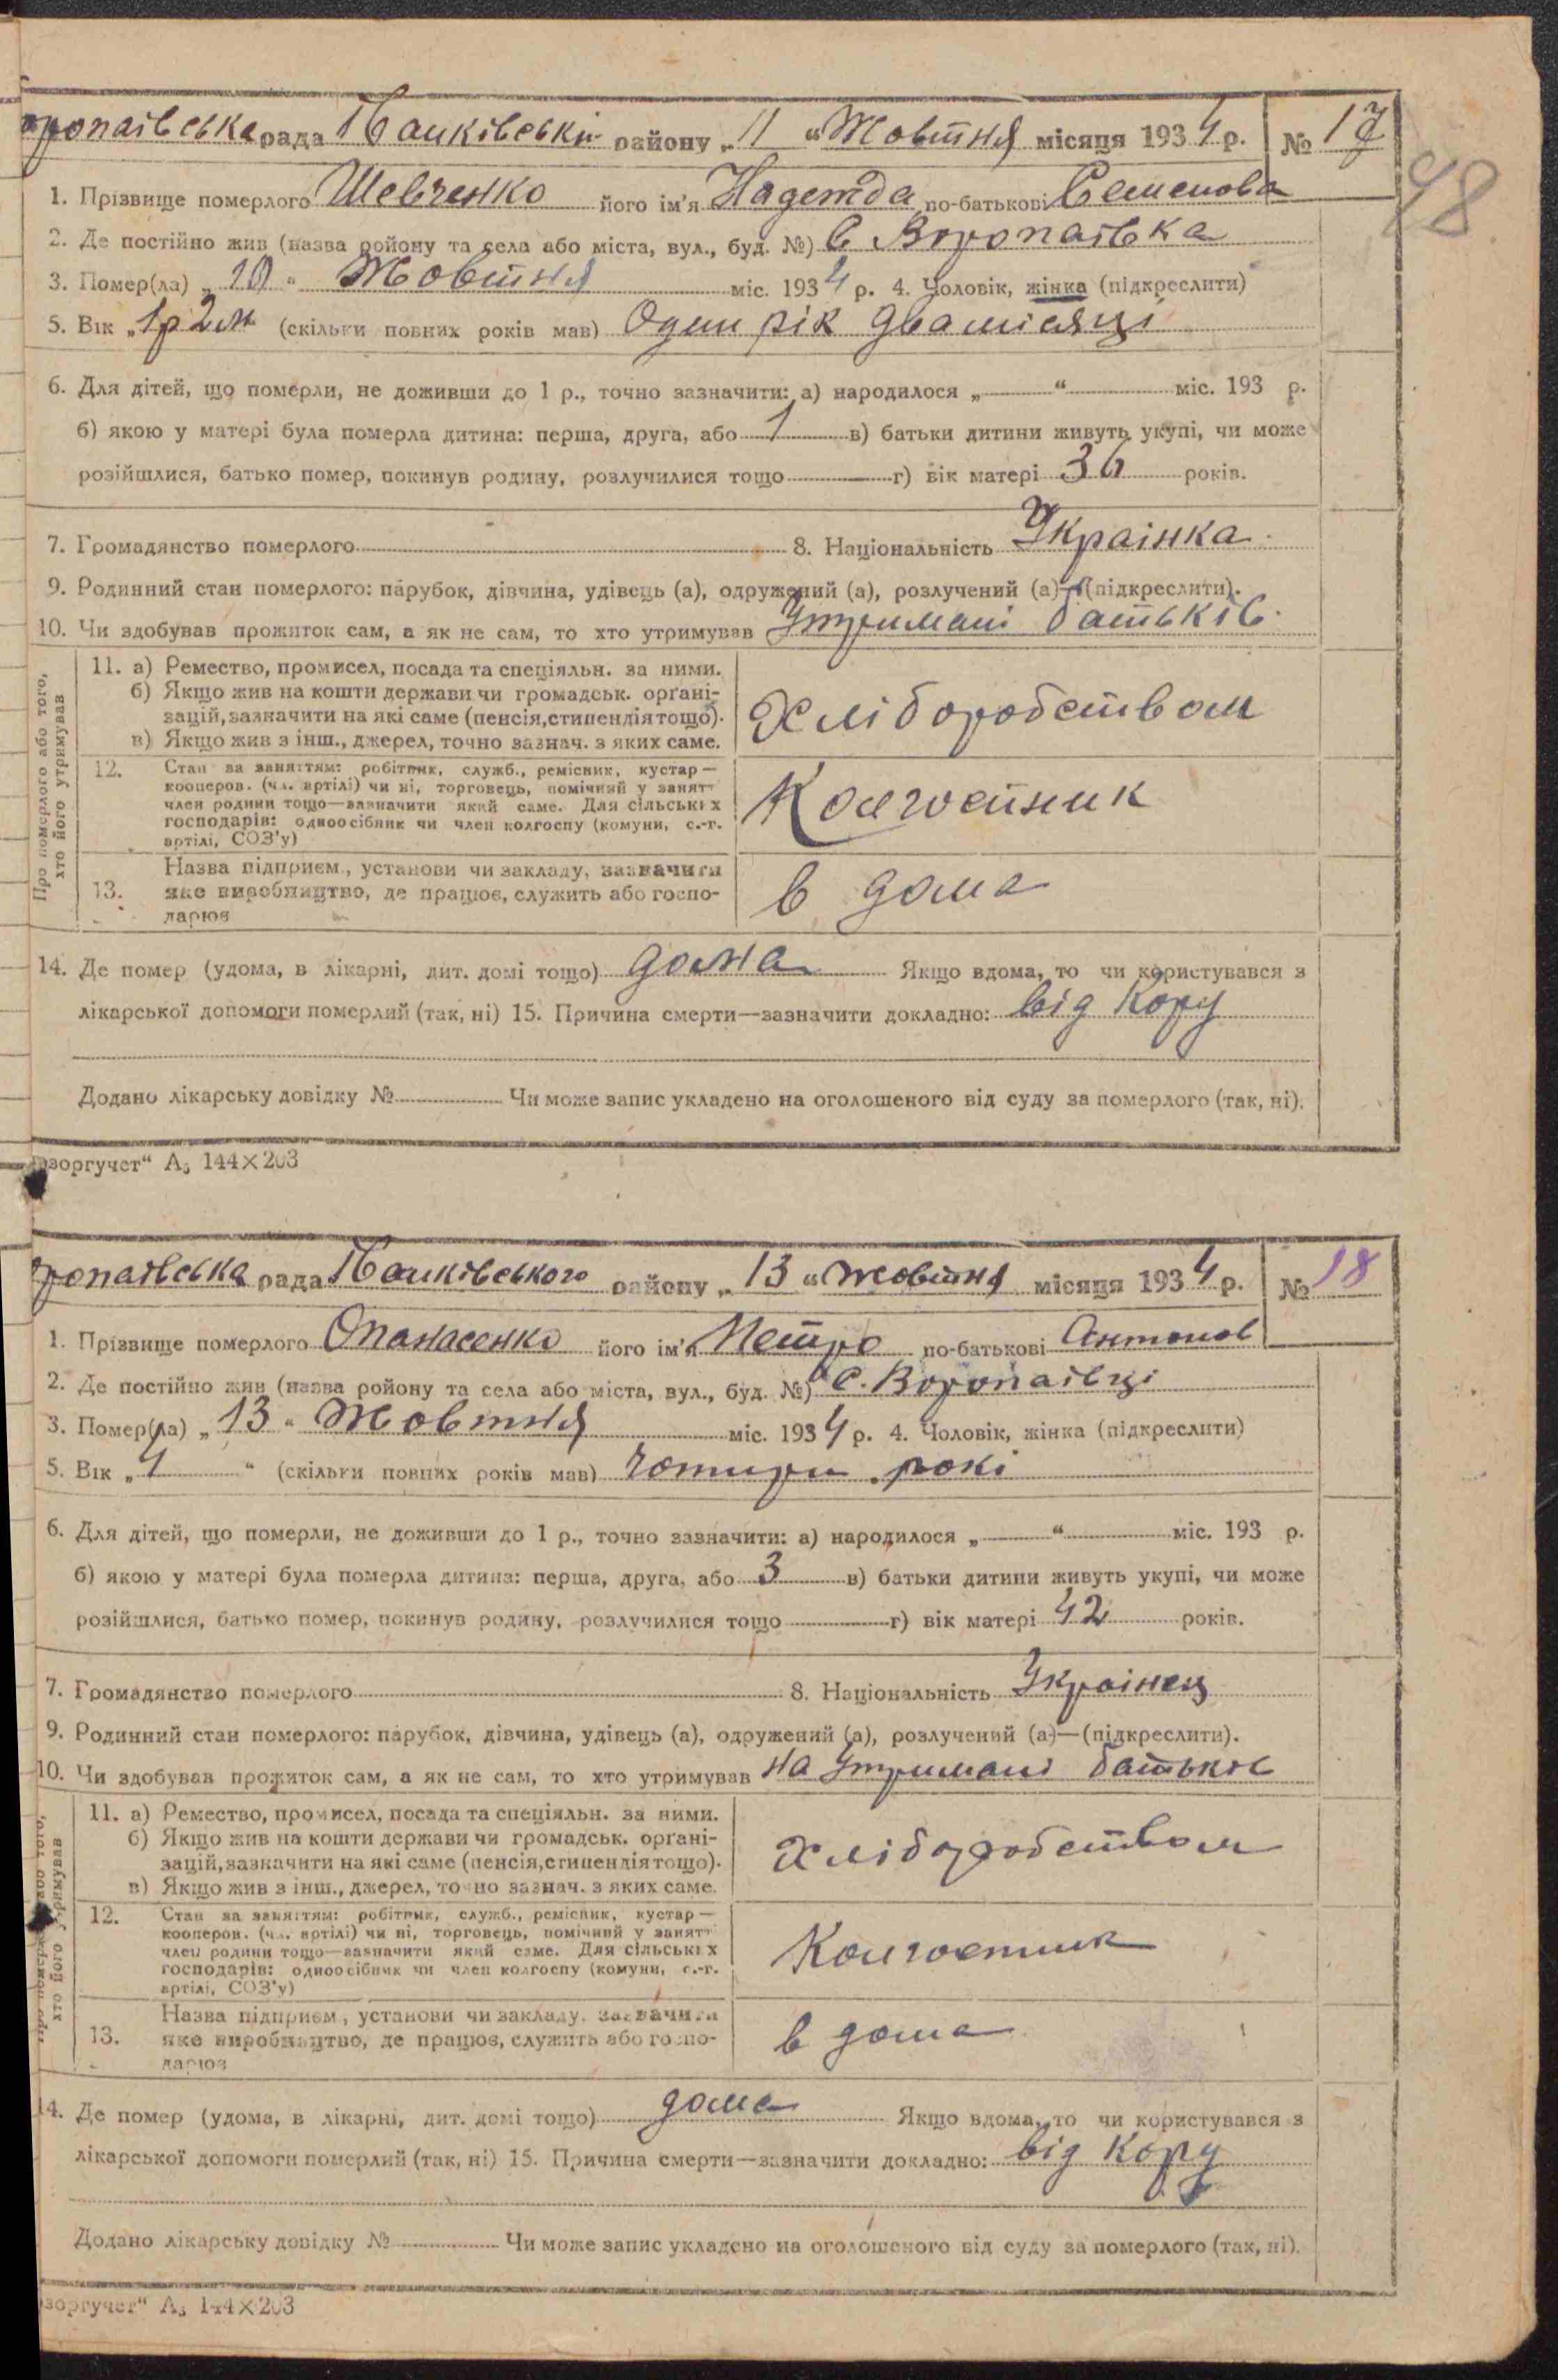 ропаївська рада району „ 11 “ Жовтня місяця 1934 р. № 17
48
1. Прізвище померлого Шевченко його ім’я Надежда по-батькові Семенова
2. Де постійно жив (назва ройону та села або міста, вул., буд. №) с Воропаївка
3. Помер(ла) „ 10 “ Жовтня міс. 1934 р. 4. Чоловік, жінка (підкреслити)
5. Вік „ 1р 2м (скільки повних років мав) Один рік два місяці
6. Для дітей, що померли, не доживши до 1 р., точно зазначити: а) народилося „ “ міс. 193 р.
б) якою у матері була померла дитина: перша, друга, або 1 в) батьки дитини живуть укупі, чи може
розійшлися, батько помер, покинув родину, розлучилися тощо г) вік матері 36 років.
7. Громадянство померлого 8. Національність Украінка
9. Родинний стан померлого: парубок, дівчина, удівець (а), одружений (а), розлучений (а)—(підкреслити).
10. Чи здобував прожиток сам, а як не сам, то хто утримував Утримані батьків
Про померлого або того, хто його утримував
11. а) Ремество, промисел, посада та спеціяльн. за ними.
б) Якщо жив на кошти держави чи громадськ. орґані-
зацій, зазначити на які саме (пенсія, стипендія тощо).
в) Якщо жив з інш., джерел, точно зазнач. з яких саме.
Хліборобством
12. Стан за заняттям: робітник, служб., ремісник, кустар—
кооперов. (чл. артілі) чи ні, торговець, помічний у занятт
член родини тощо—зазначити який саме. Для сільських
господарів: одноосібник чи член колгоспу (комуни, с.-г.
артілі, СОЗ’у)
Колгостник
13. Назва підприєм., установи чи закладу, зазначити
яке виробництво, де працює, служить або госпо-
дарює
в дома
14. Де помер (удома, в лікарні, дит. домі тощо) дома Якщо вдома, то чи користувався з
лікарської допомоги померлий (так, ні) 15. Причина смерти—зазначити докладно: від Кору
Додано лікарську довідку № Чи може запис укладено на оголошеного від суду за померлого (так, ні).
зоргучет“ А₅ 144×203
ропаївська рада району „ 13 “ Жовтня місяця 1934 р. № 18
1. Прізвище померлого Опанасенко його ім’я Петро по-батькові Антонов
2. Де постійно жив (назва ройону та села або міста, вул., буд. №) с. Воропаївці
3. Помер(ла) „ 13 “ Жовтня міс. 1934 р. 4. Чоловік, жінка (підкреслити)
5. Вік „ 4 “ (скільки повних років мав) чотири рокі
6. Для дітей, що померли, не доживши до 1 р., точно зазначити: а) народилося „ “ міс. 193 р.
б) якою у матері була померла дитина: перша, друга, або 3 в) батьки дитини живуть укупі, чи може
розійшлися, батько помер, покинув родину, розлучилися тощо г) вік матері 42 років.
7. Громадянство померлого 8. Національність Украінец
9. Родинний стан померлого: парубок, дівчина, удівець (а), одружений (а), розлучений (а)—(підкреслити).
10. Чи здобував прожиток сам, а як не сам, то хто утримував на Утримані батьков
Про померлого або того, хто його утримував
11. а) Ремество, промисел, посада та спеціяльн. за ними.
б) Якщо жив на кошти держави чи громадськ. орґані-
зацій, зазначити на які саме (пенсія, стипендія тощо).
в) Якщо жив з інш., джерел, точно зазнач. з яких саме.
Хліборобством
12. Стан за заняттям: робітник, служб., ремісник, кустар—
кооперов. (чл. артілі) чи ні, торговець, помічний у занятт
член родини тощо—зазначити який саме. Для сільських
господарів: одноосібник чи член колгоспу (комуни, с.-г.
артілі, СОЗ’у)
Колгостник
13. Назва підприєм., установи чи закладу, зазначити
яке виробництво, де працює, служить або госпо-
дарює
в дома
14. Де помер (удома, в лікарні, дит. домі тощо) дома Якщо вдома, то чи користувався з
лікарської допомоги померлий (так, ні) 15. Причина смерти—зазначити докладно: від Кору
Додано лікарську довідку № Чи може запис укладено на оголошеного від суду за померлого (так, ні).
зоргучет“ А₅ 144×203